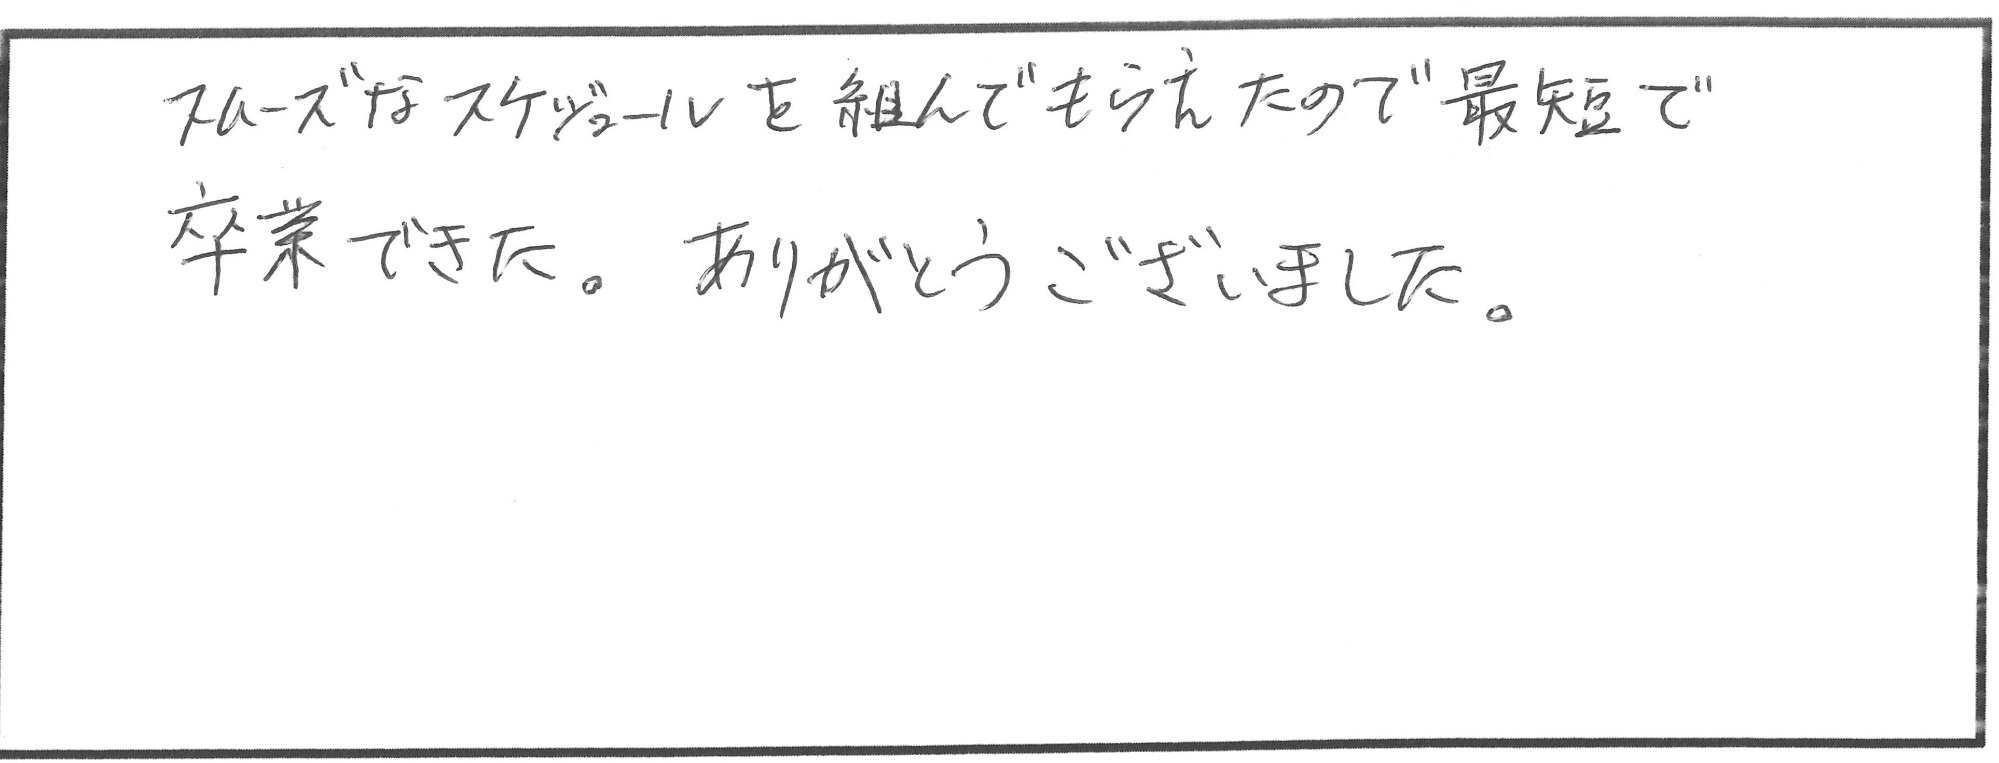 スムーズなスケジュールを組んでもらえたので最短で
卒業できた。ありがとうございました。